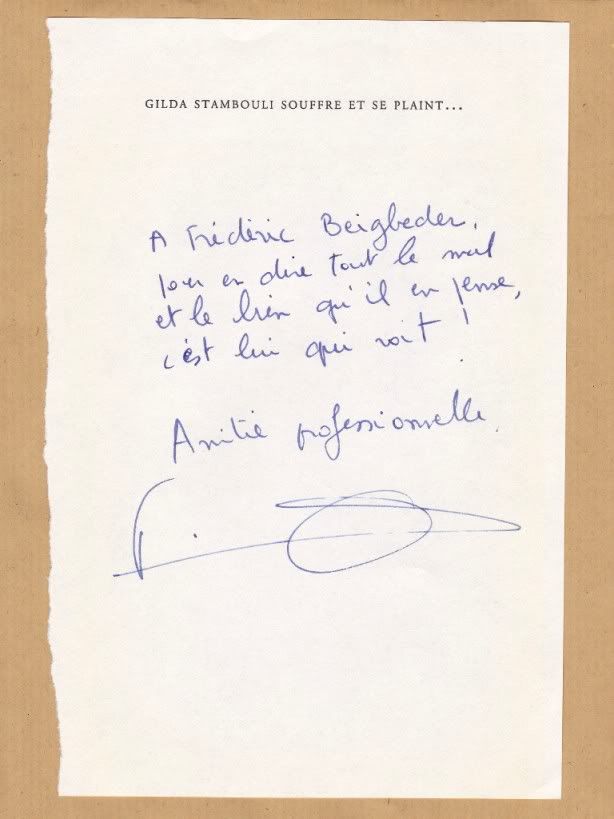 GILDA STAMBOULI SOUFFRE ET SE PLAINT...
A Frédéric Beigbeder,
pour en dire tout le mal
et le bien qu'il en pense,
c'est lui qui voit !
Amitié professionnelle.